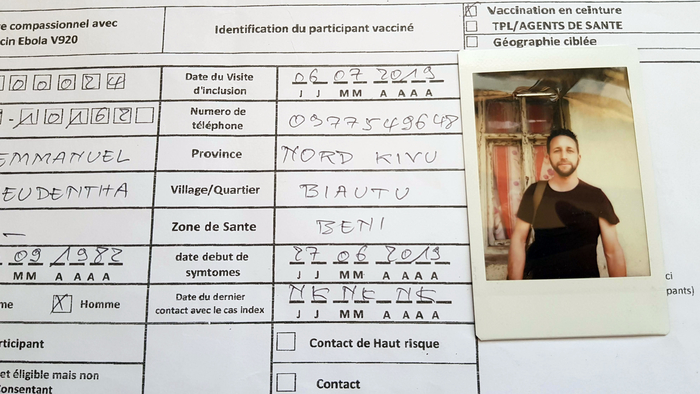 re compassionnel avec
cin Ebola V920
Identification du participant vacciné
Vaccination en ceinture
TPL/AGENTS DE SANTE
Géographie ciblée
00024 Date du Visite d'inclusion 06 07 2019
J J MM A A A A
-10162 Numero de téléphone 0977549648
EMMANUEL Province NORD KIVU
EUDENTHA Village/Quartier BIAUTU
— Zone de Sante BENI
09 1982 date debut de symtomes 27 06 2019
MM A A A A J J MM A A A A
me X Homme Date du dernier contact avec le cas index NK NK NK
J J MM A A A A
articipant Contact de Haut risque
et éligible mais non
Consentant Contact
ci
pants)